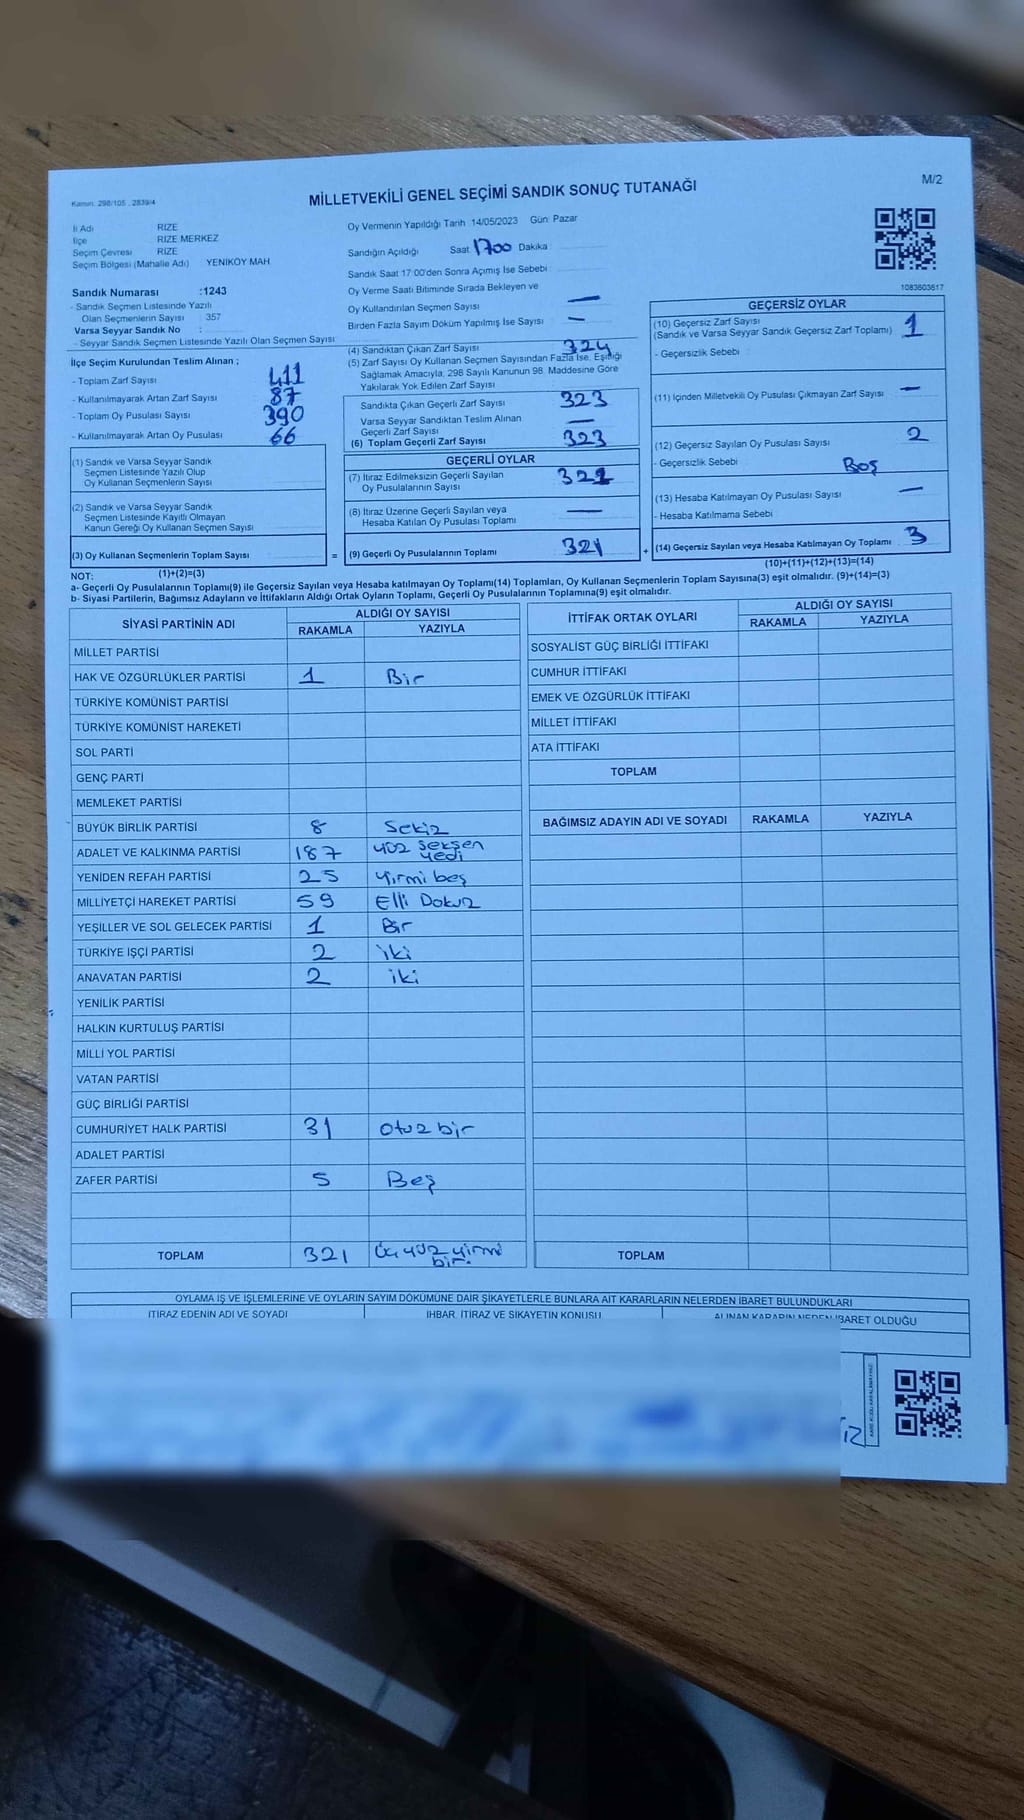 M/2
Kanun: 298/105 , 2839/4
MİLLETVEKİLİ GENEL SEÇİMİ SANDIK SONUÇ TUTANAĞI
İl Adı RİZE
İlçe RİZE MERKEZ
Seçim Çevresi RİZE
Seçim Bölgesi (Mahalle Adı) YENİKÖY MAH.
Sandık Numarası :1243
- Sandık Seçmen Listesinde Yazılı
Olan Seçmenlerin Sayısı : 357
Varsa Seyyar Sandık No :
- Seyyar Sandık Seçmen Listesinde Yazılı Olan Seçmen Sayısı:
Oy Vermenin Yapıldığı Tarih 14/05/2023 Gün: Pazar
Sandığın Açıldığı Saat 1700 Dakika
Sandık Saat 17:00'den Sonra Açımış İse Sebebi
Oy Verme Saati Bitiminde Sırada Bekleyen ve
Oy Kullandırılan Seçmen Sayısı —
Birden Fazla Sayım Döküm Yapılmış İse Sayısı —
1083603617
İlçe Seçim Kurulundan Teslim Alınan ;
- Toplam Zarf Sayısı 411
- Kullanılmayarak Artan Zarf Sayısı 87
- Toplam Oy Pusulası Sayısı 390
- Kullanılmayarak Artan Oy Pusulası 66
(1) Sandık ve Varsa Seyyar Sandık
Seçmen Listesinde Yazılı Olup
Oy Kullanan Seçmenlerin Sayısı
(2) Sandık ve Varsa Seyyar Sandık
Seçmen Listesinde Kayıtlı Olmayan
Kanun Gereği Oy Kullanan Seçmen Sayısı
(3) Oy Kullanan Seçmenlerin Toplam Sayısı =
(1)+(2)=(3)
(4) Sandıktan Çıkan Zarf Sayısı 324
(5) Zarf Sayısı Oy Kullanan Seçmen Sayısından Fazla İse, Eşitliği
Sağlamak Amacıyla, 298 Sayılı Kanunun 98. Maddesine Göre
Yakılarak Yok Edilen Zarf Sayısı
Sandıkta Çıkan Geçerli Zarf Sayısı 323
Varsa Seyyar Sandıktan Teslim Alınan
Geçerli Zarf Sayısı —
(6) Toplam Geçerli Zarf Sayısı 323
GEÇERLİ OYLAR
(7) İtiraz Edilmeksizin Geçerli Sayılan
Oy Pusulalarının Sayısı 321
(8) İtiraz Üzerine Geçerli Sayılan veya
Hesaba Katılan Oy Pusulası Toplamı —
(9) Geçerli Oy Pusulalarının Toplamı 321 +
GEÇERSİZ OYLAR
(10) Geçersiz Zarf Sayısı
(Sandık ve Varsa Seyyar Sandık Geçersiz Zarf Toplamı) 1
- Geçersizlik Sebebi
(11) İçinden Milletvekili Oy Pusulası Çıkmayan Zarf Sayısı —
(12) Geçersiz Sayılan Oy Pusulası Sayısı 2
- Geçersizlik Sebebi Boş
(13) Hesaba Katılmayan Oy Pusulası Sayısı —
- Hesaba Katılmama Sebebi
(14) Geçersiz Sayılan veya Hesaba Katılmayan Oy Toplamı 3
(10)+(11)+(12)+(13)=(14)
NOT:
a- Geçerli Oy Pusulalarının Toplamı(9) ile Geçersiz Sayılan veya Hesaba katılmayan Oy Toplamı(14) Toplamları, Oy Kullanan Seçmenlerin Toplam Sayısına(3) eşit olmalıdır. (9)+(14)=(3)
b- Siyasi Partilerin, Bağımsız Adayların ve İttifakların Aldığı Ortak Oyların Toplamı, Geçerli Oy Pusulalarının Toplamına(9) eşit olmalıdır.
SİYASİ PARTİNİN ADI ALDIĞI OY SAYISI
RAKAMLA YAZIYLA
MİLLET PARTİSİ
HAK VE ÖZGÜRLÜKLER PARTİSİ 1 Bir
TÜRKİYE KOMÜNİST PARTİSİ
TÜRKİYE KOMÜNİST HAREKETİ
SOL PARTİ
GENÇ PARTİ
MEMLEKET PARTİSİ
BÜYÜK BİRLİK PARTİSİ 8 Sekiz
ADALET VE KALKINMA PARTİSİ 187 yüz seksen yedi
YENİDEN REFAH PARTİSİ 25 yirmi beş
MİLLİYETÇİ HAREKET PARTİSİ 59 Elli Dokuz
YEŞİLLER VE SOL GELECEK PARTİSİ 1 Bir
TÜRKİYE İŞÇİ PARTİSİ 2 iki
ANAVATAN PARTİSİ 2 iki
YENİLİK PARTİSİ
HALKIN KURTULUŞ PARTİSİ
MİLLİ YOL PARTİSİ
VATAN PARTİSİ
GÜÇ BİRLİĞİ PARTİSİ
CUMHURİYET HALK PARTİSİ 31 otuz bir
ADALET PARTİSİ
ZAFER PARTİSİ 5 Beş
TOPLAM 321 üç yüz yirmi bir.
İTTİFAK ORTAK OYLARI ALDIĞI OY SAYISI
RAKAMLA YAZIYLA
SOSYALİST GÜÇ BİRLİĞİ İTTİFAKI
CUMHUR İTTİFAKI
EMEK VE ÖZGÜRLÜK İTTİFAKI
MİLLET İTTİFAKI
ATA İTTİFAKI
TOPLAM
BAĞIMSIZ ADAYIN ADI VE SOYADI RAKAMLA YAZIYLA
TOPLAM
OYLAMA İŞ VE İŞLEMLERİNE VE OYLARIN SAYIM DÖKÜMÜNE DAİR ŞİKAYETLERLE BUNLARA AİT KARARLARIN NELERDEN İBARET BULUNDUKLARI
İTİRAZ EDENİN ADI VE SOYADI İHBAR, İTİRAZ VE ŞİKAYETİN KONUSU ALINAN KARARIN NEDEN İBARET OLDUĞU